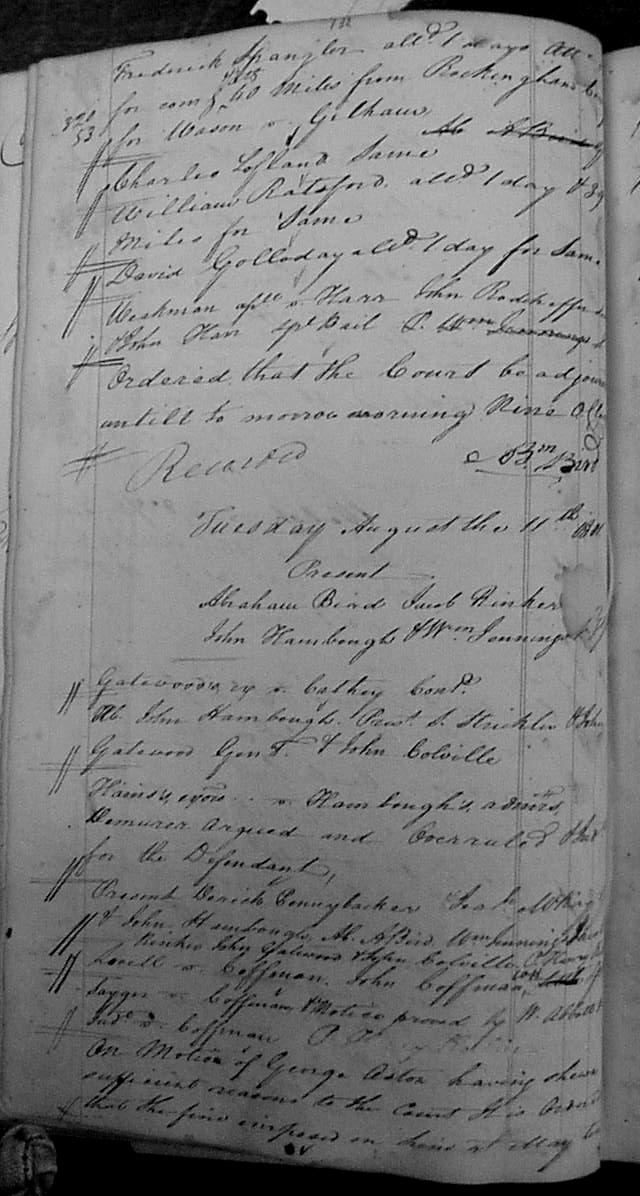 132
Frederick Spangler attd 1 days att
for comg 40 Miles from Rockingham
for Wason v. Gilham
Ab A Bird
Charles Lofland Same
William Ratsford attd 1 day & 39
Miles for Same
David Golladay attd 1 day for Same
Weshman v Harr John
& John Harr Spl Bail P. Wm Jennings
Ordered that the Court be adjourn
untill to morrow morning Nine
Recorded
Tuesday August the 11th
Present
Abraham Bird Jacob Rinker
John Hambough & Wm Jennings
Gatewood's ex v. Cathey Contd
Ab. John Hambough. Prest J. Strickler & John
Gatewood Gent & John Colville
Hains's exors v Hambough's admrs
Demurer Argued and Overruled & Judt
for the Defendant,
Present Derick Pennybacker
& John Hambough, Ab. A Bird, Wm Jennings
Rinker John Gatewood & John Colville, P
Lovell v. Coffman. John Coffman
v. Coffman & Motion proved by W. Abbott
Judt v. Coffman P.
On Motion of George Aston having shewn
sufficient reasons to the Court It is Ordered
that the fine imposed on him at May